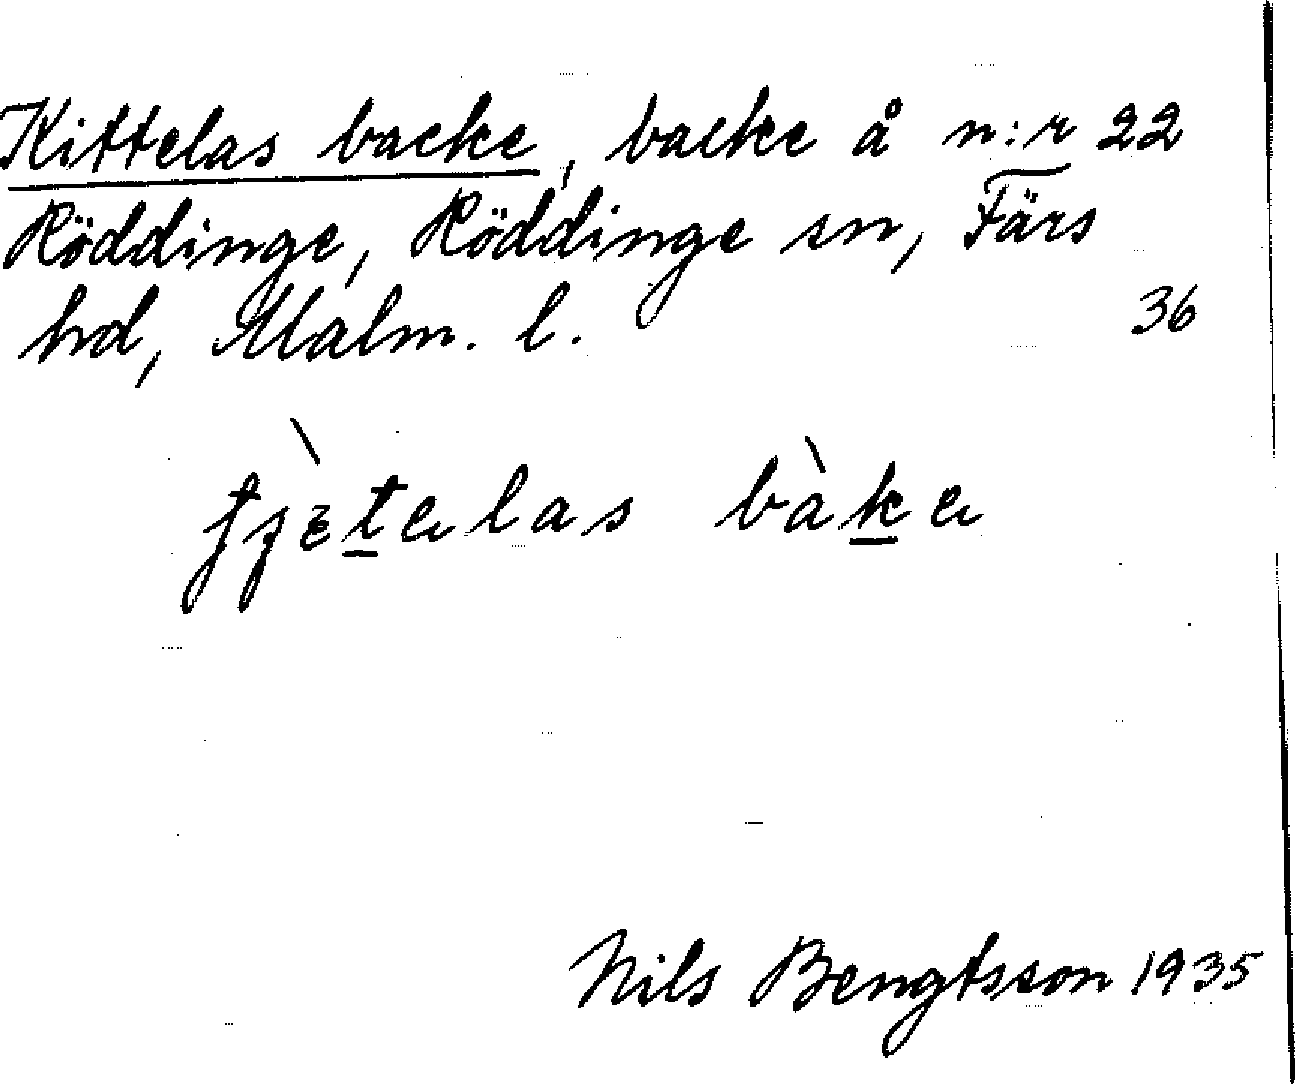 Kittelas backe, backe å n:r 22
Röddinge, Röddinge sn, Färs
hd, Malm. l. 36
bàke
Nils Bengtsson 1935